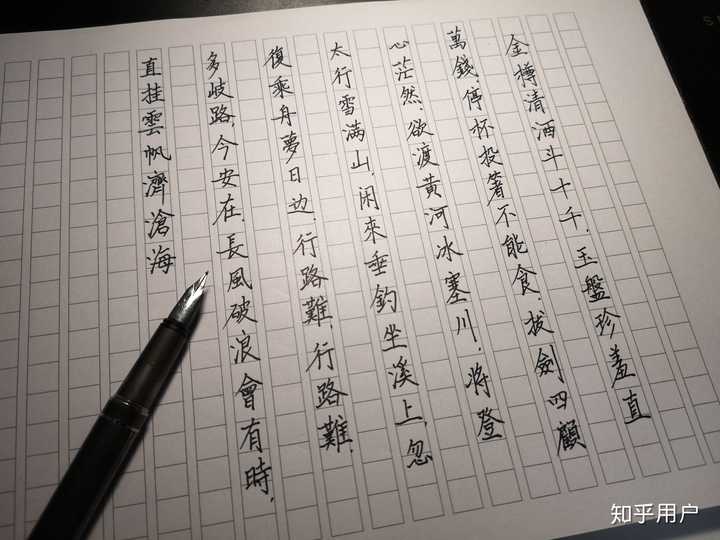 金樽清酒斗十千,玉盤珍羞直
萬錢,停杯投箸不能食,拔劍四顧
心茫然,欲渡黃河冰塞川,將登
太行雪滿山,闲來垂釣坐溪上,忽
復乘舟夢日边,行路難,行路難,
多岐路,今安在,長風破浪會有時,
直挂雲帆濟滄海
知乎用户